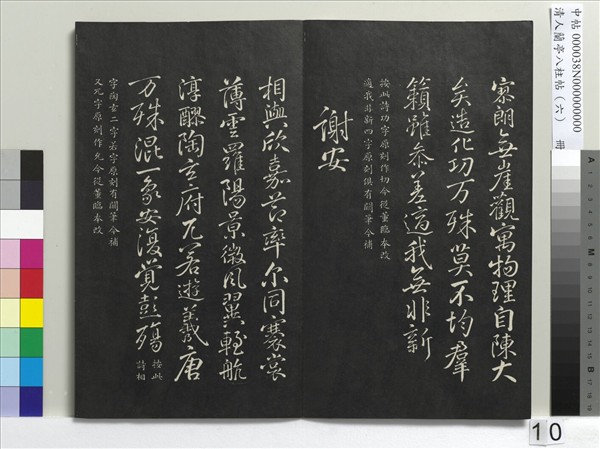 寥朗無崖觀寓物理自陳大
矣造化功万殊莫不均羣
籟雖叅差適我無非新
按此詩功字原刻作初今從董臨本改
適我非新四字原刻俱有闕筆今補
謝安
相與欣嘉莭率尔同褰裳
薄雲羅陽景微風翼輕航
淳醪陶玄府兀若遊羲唐
万殊混一象安復覺彭殤
按此
詩相
字陶玄二字若字原刻有闕筆今補
又兀字原刻作允今從董臨本改
中帖 000038N000000000
清人蘭亭八柱帖（六） 冊
10